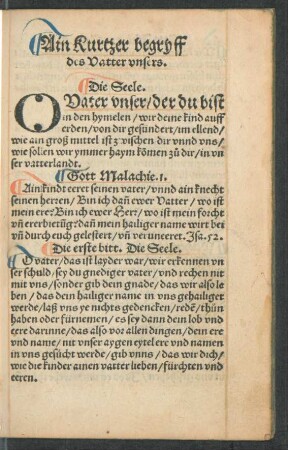 Ain Kurtzer begryff
des Vatter vnsers.
Die Seele.
O Vater vnser/der du bist
in den hymelen/wir deine kind auff
erden/von dir gesundert/im ellend/
wie ain groß mittel ist zwischen dir vnnd vns/
wie sollen wir ymmer haym kömen zů dir/in vn
ser vatterlandt.
Gott Malachie.1.
Ain kindt eeret seinen vater/vnnd ain knecht
seinen herren/Bin ich dañ ewer Vatter/wo ist
mein ere? Bin ich ewer Herr/wo ist mein forcht
vñ ererbietũg? dañ mein hailiger name wirt bei
vñ durch euch gelestert/vñ veruneeret. Isa.52.
Die erste bitt. Die Seele.
O vater/das ist layder war/wir erkennen vn
ser schuld/sey du gnediger vater/vnd rechen nit
mit vns/sonder gib dein gnade/das wir also le
ben/das dein hailiger name in vns gehailiget
werde/laß vns ye nichts gedencken/redẽ/thůn
haben oder fürnemen/es sey dann dein lob vnd
eere darinne/das also vor allen dingen/dein ere
vnd name/nit vnser aygen eytel ere vnd namen
in vns gesůcht werde/gib vnns/das wir dich/
wie die kinder ainen vatter lieben/fürchten vnd
eeren.